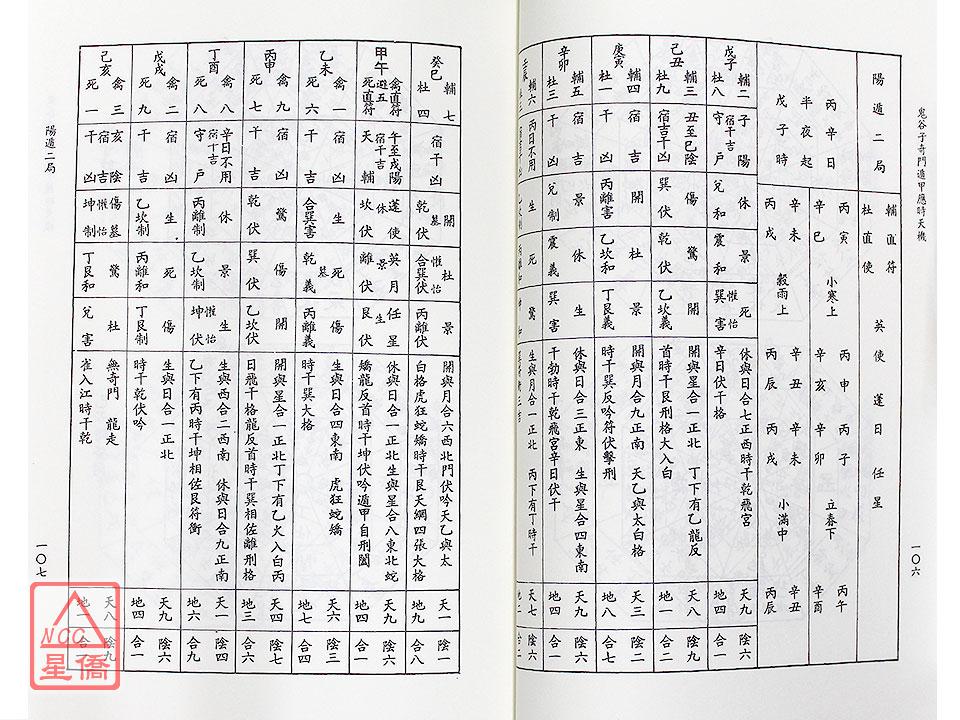 鬼谷子奇門遁甲應時天機
一〇六
陽遁二局
丙辛日
半夜起
戊子時
輔直符 英使蓬日任星
杜直使
丙寅 小寒上 丙申 丙子 立春下 丙午
辛巳 辛亥 辛卯 辛酉
辛未 穀雨上 辛丑 辛未 小滿中 辛丑
丙戌 丙辰 丙戌 丙辰
戊子 輔二 杜八
子陽 宿干吉 守戶
休 兌和
景 震義
死 惟怡 巽害
休與日合七正西時干乾飛宮
辛日伏干格
天九 地四
陰六 合一
己丑 輔三 杜九
丑至巳陰 宿吉干凶
傷 巽伏
驚 乾伏
開 乙坎伏
開與星合一正北 丁下有乙龍反
首時干艮刑格大入白
天八 地一
陰九 合二
庚寅 輔四 杜一
宿吉 干凶
開 丙離害
杜 乙坎和
景 丁艮義
開與月合九正南 天乙與太白格
時干巽反吟符伏擊刑
天三 地八
陰二 合七
辛卯 輔五 杜三
宿凶 干吉
景 兌伏
休 震義
生 巽害
休與日合三正東 生與星合四東南
干勃時干乾飛宮辛日伏干
天九 地四
陰六 合一
輔六
丙日不用
生
死
驚
生與月合一正北 丙下有丁時干
天七 地二
陰六 合二
癸巳 輔七 杜四
宿干凶
開 乾墓伏
杜 惟怡 合巽伏
景 丙離伏
開與月合六西北門伏吟天乙與太
白格虎狂蛇矯時干艮天網四張大格
天一 地九
陰一 合八
甲午 禽直符 遊五 死直符
午至戌陽 宿干吉 天輔
蓬使 休 坎伏
英月 景 離伏
任星 生 艮伏
休與日合一正北生與星合八東北蛇
矯龍反首時干坤伏吟遁甲自刑闔
天九 地四
陰六 合一
乙未 禽一 死六
宿凶 干吉
生 合巽害
死 墓 乾義
傷 丙離義
生與日合四東南 虎狂蛇矯
時干巽大格
天六 地七
陰三 合四
丙申 禽九 死七
宿凶 干吉
驚 乾伏
傷 巽伏
開 乙坎伏
開與星合一正北丁下有乙火入白丙
日飛干格龍反首時干巽相佐離刑格
天四 地三
陰七 合四
丁酉 禽八 死八
辛日不用 宿干吉 守戶
休 丙離制
景 乙坎制
生 惟怡 坤伏
生與西合二西南 休與日合九正南
乙下有丙時干坤相佐艮符衝
天一 地六
陰六 合九
戊戌 禽二 死九
宿凶 干吉
生 乙坎制
死 丙離和
傷 丁艮制
生與日合一正北
時干乾伏吟
天九 地四
陰六 合一
己亥 禽三 死一
亥陰 宿吉 干凶
傷墓 惟怡 坤制
驚 丁艮和
杜 兌害
無奇門 龍走
雀入江時干乾
天八 地一
陰九 合
陽遁二局
一〇七
NCC
星僑